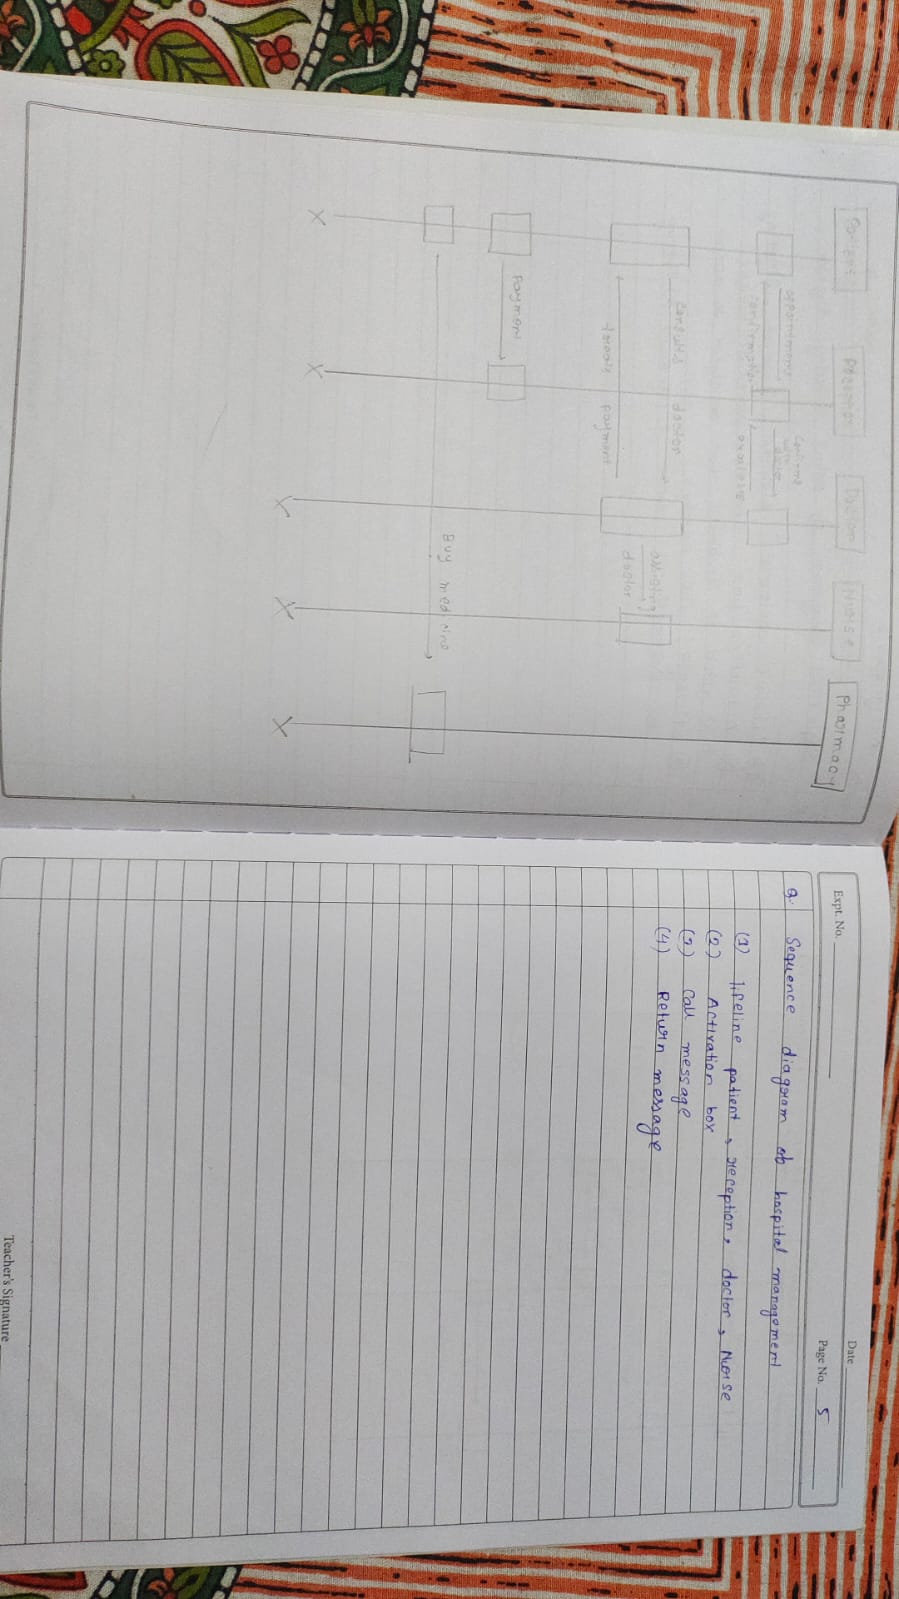 Patient Reception Doctor Nurse Pharmacy
appointment
confirms
confirmation
consults doctor
assisting
doctor
payment
Payment
Buy medicine
Date
Expt. No.
Page No. 5
Q. Sequence diagram of hospital management
(1) lifeline patient, reception, doctor, Nurse
(2) Activation box
(3) Call message
(4) Return message
Teacher's Signature